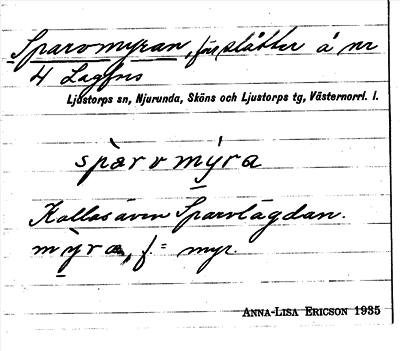 Sparvmyran, förr slåtter å nr
4 Lagfors
Ljustorps sn, Njurunda, Sköns och Ljustorps tg, Västernorrl. l.
spàrvmýra
Kallas även Sparvlägdan.
mỳra, f. = myr.
ANNA-LISA ERICSON 1935